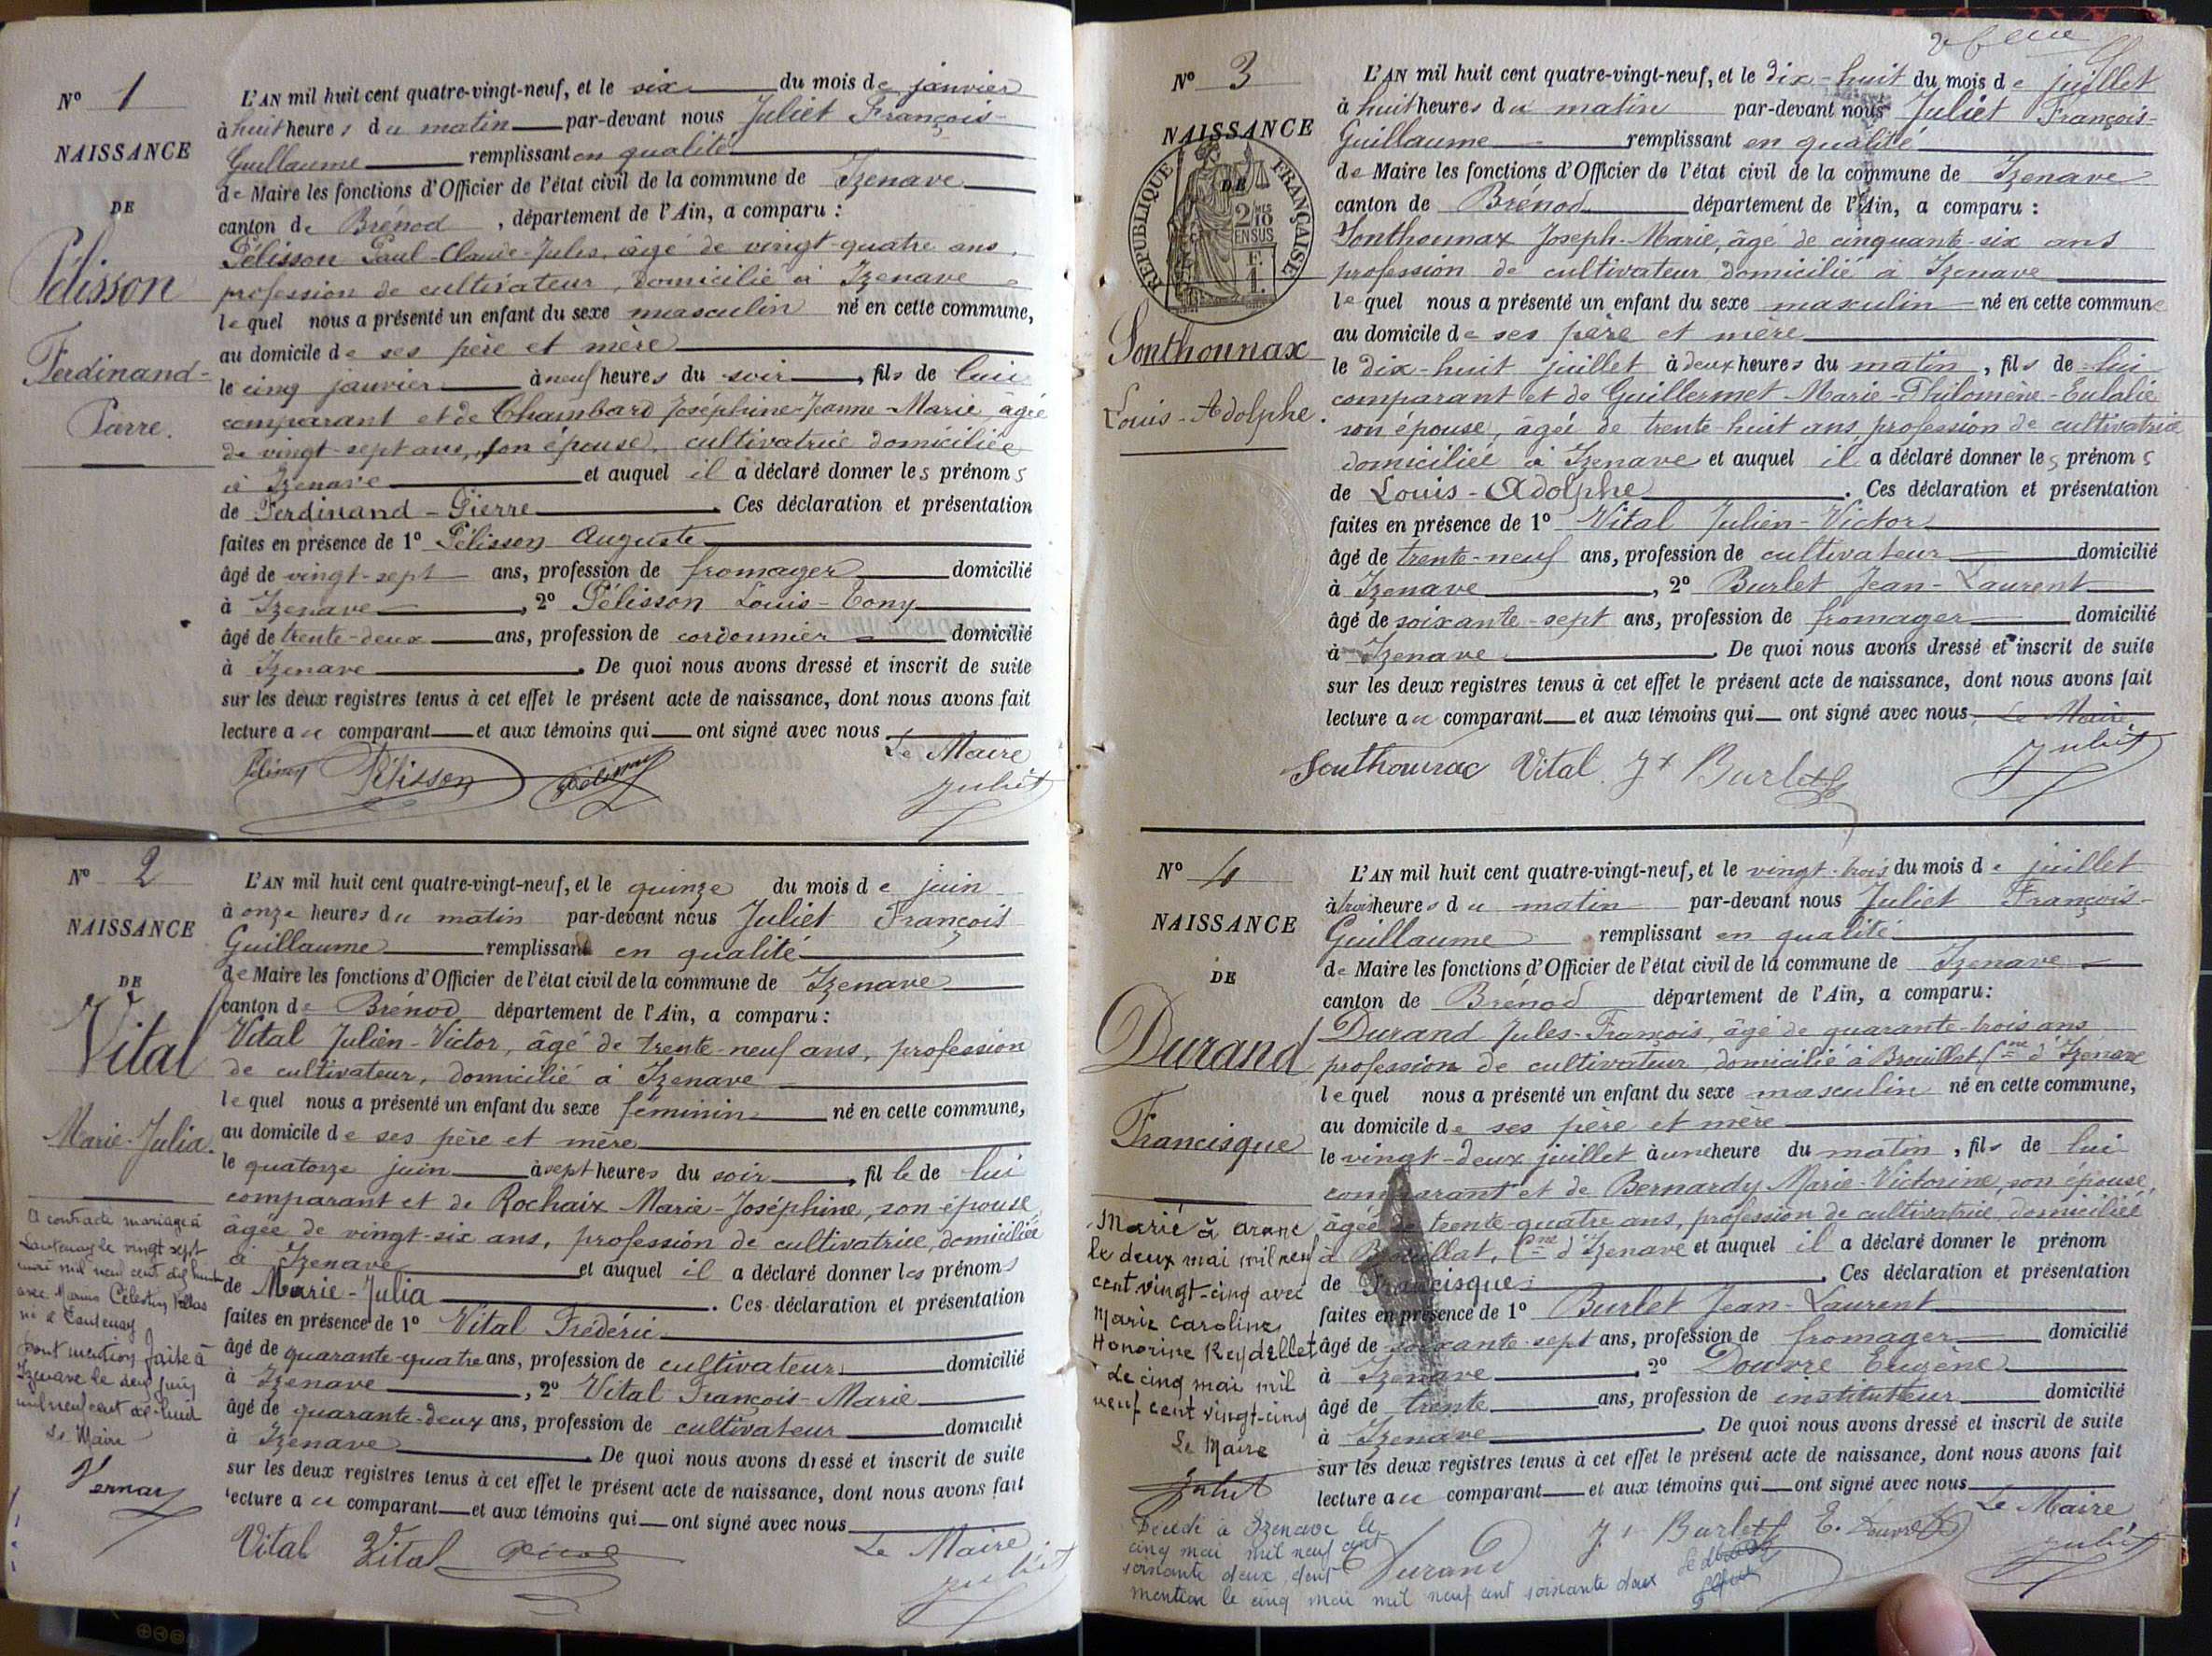 N° 1
NAISSANCE
DE
Pélisson
Ferdinand-
Pierre.
L'AN mil huit cent quatre-vingt-neuf, et le six du mois de janvier
à huit heures du matin par-devant nous Juliet François-
Guillaume remplissant en qualité
de Maire les fonctions d'Officier de l'état civil de la commune de Izenave
canton de Brénod, département de l'Ain, a comparu :
Pélisson Paul-Claude-Jules, âgé de vingt-quatre ans,
profession de cultivateur, domicilié à Izenave
lequel nous a présenté un enfant du sexe masculin né en cette commune,
au domicile de ses père et mère
le cinq janvier à neuf heures du soir, fils de lui
comparant et de Chambard Joséphine-Jeanne-Marie, âgée
de vingt-sept ans, son épouse, cultivatrice domiciliée
à Izenave et auquel il a déclaré donner les prénoms
de Ferdinand-Pierre. Ces déclaration et présentation
faites en présence de 1° Pélisson Auguste
âgé de vingt-sept ans, profession de fromager domicilié
à Izenave, 2° Pélisson Louis-Tony
âgé de trente-deux ans, profession de cordonnier domicilié
à Izenave. De quoi nous avons dressé et inscrit de suite
sur les deux registres tenus à cet effet le présent acte de naissance, dont nous avons fait
lecture au comparant et aux témoins qui ont signé avec nous
Le Maire
Pélisson Juliet
N° 2
NAISSANCE
DE
Vital
Marie-Julia.
A contracté mariage à
Lantenay le vingt sept
mil neuf cent dix huit
avec Marius Célestin
né à Lantenay
Dont mention faite à
Izenave le deux juin
mil neuf cent dix-huit
Le Maire
L'AN mil huit cent quatre-vingt-neuf, et le quinze du mois de juin
à onze heures du matin par-devant nous Juliet François
Guillaume remplissant en qualité
de Maire les fonctions d'Officier de l'état civil de la commune de Izenave
canton de Brénod département de l'Ain, a comparu :
Vital Julien-Victor, âgé de trente-neuf ans, profession
de cultivateur, domicilié à Izenave
lequel nous a présenté un enfant du sexe féminin né en cette commune,
au domicile de ses père et mère
le quatorze juin à sept heures du soir, fille de lui
comparant et de Rochaix Marie-Joséphine, son épouse
âgée de vingt-six ans, profession de cultivatrice, domiciliée
à Izenave et auquel il a déclaré donner les prénoms
de Marie-Julia. Ces déclaration et présentation
faites en présence de 1° Vital Frédéric
âgé de quarante-quatre ans, profession de cultivateur domicilié
à Izenave, 2° Vital François-Marie
âgé de quarante-deux ans, profession de cultivateur domicilié
à Izenave. De quoi nous avons dressé et inscrit de suite
sur les deux registres tenus à cet effet le présent acte de naissance, dont nous avons fait
lecture au comparant et aux témoins qui ont signé avec nous
Vital Vital Le Maire
Juliet
N° 3
NAISSANCE
DE
RÉPUBLIQUE FRANÇAISE
2 MES
10
EN SUS
Sonthonnax
Louis-Adolphe.
L'AN mil huit cent quatre-vingt-neuf, et le dix-huit du mois de juillet
à huit heures du matin par-devant nous Juliet François-
Guillaume remplissant en qualité
de Maire les fonctions d'Officier de l'état civil de la commune de Izenave
canton de Brénod département de l'Ain, a comparu :
Sonthonnax Joseph-Marie, âgé de cinquante-six ans
profession de cultivateur domicilié à Izenave
lequel nous a présenté un enfant du sexe masculin né en cette commune
au domicile de ses père et mère
le dix-huit juillet à deux heures du matin, fils de lui
comparant et de Guillermet Marie-Philomène-Eulalie
son épouse, âgée de trente-huit ans profession de cultivatrice
domiciliée à Izenave et auquel il a déclaré donner les prénoms
de Louis-Adolphe. Ces déclaration et présentation
faites en présence de 1° Vital Julien-Victor
âgé de trente-neuf ans, profession de cultivateur domicilié
à Izenave, 2° Burlet Jean-Laurent
âgé de soixante-sept ans, profession de fromager domicilié
à Izenave. De quoi nous avons dressé et inscrit de suite
sur les deux registres tenus à cet effet le présent acte de naissance, dont nous avons fait
lecture au comparant et aux témoins qui ont signé avec nous. Le Maire,
Sonthonnax Vital Burlet Juliet
N° 4
NAISSANCE
DE
Durand
Francisque
Marié à Aranc
le deux mai mil neuf
cent vingt-cinq avec
Marie Caroline
Honorine Reydellet
Le cinq mai mil
neuf cent vingt-cinq
Le Maire
Juliet
Décédé à Izenave le
cinq mai mil neuf cent
soixante deux, dont
mention le cinq mai mil neuf cent soixante deux
L'AN mil huit cent quatre-vingt-neuf, et le vingt-trois du mois de juillet
à trois heures du matin par-devant nous Juliet François-
Guillaume remplissant en qualité
de Maire les fonctions d'Officier de l'état civil de la commune de Izenave
canton de Brénod département de l'Ain, a comparu :
Durand Jules-François, âgé de quarante-trois ans
profession de cultivateur, domicilié à Brouillat Cne d'Izenave
lequel nous a présenté un enfant du sexe masculin né en cette commune,
au domicile de ses père et mère
le vingt-deux juillet à une heure du matin, fils de lui
comparant et de Bernardy Marie-Victorine, son épouse,
âgée de trente-quatre ans, profession de cultivatrice, domiciliée
à Brouillat, Cne d'Izenave et auquel il a déclaré donner le prénom
de Francisque. Ces déclaration et présentation
faites en présence de 1° Burlet Jean-Laurent
âgé de soixante-sept ans, profession de fromager domicilié
à Izenave. 2° Douvre Eugène
âgé de trente ans, profession de instituteur domicilié
à Izenave. De quoi nous avons dressé et inscrit de suite
sur les deux registres tenus à cet effet le présent acte de naissance, dont nous avons fait
lecture au comparant et aux témoins qui ont signé avec nous
Le Maire
Durand Burlet E. Douvre Juliet